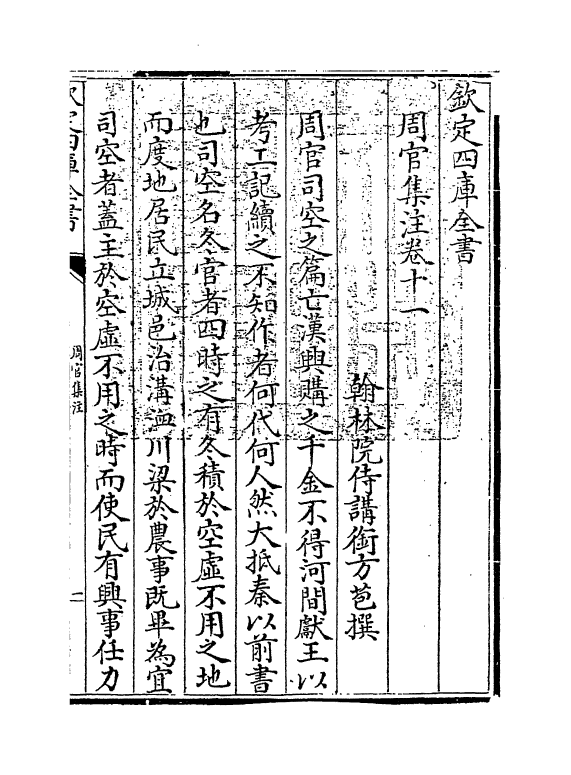 欽定四庫全書
周官集注卷十一
翰林院侍講銜方苞撰
周官司空之篇亡漢興購之千金不得河間獻王以
考工記續之不知作者何代何人然大抵秦以前書
也司空名冬官者四時之有冬積於空虛不用之地
而度地居民立城邑治溝洫川梁於農事既畢為宜
司空者蓋主於空虛不用之時而使民有興事任力
欽定四庫全書
周官集注